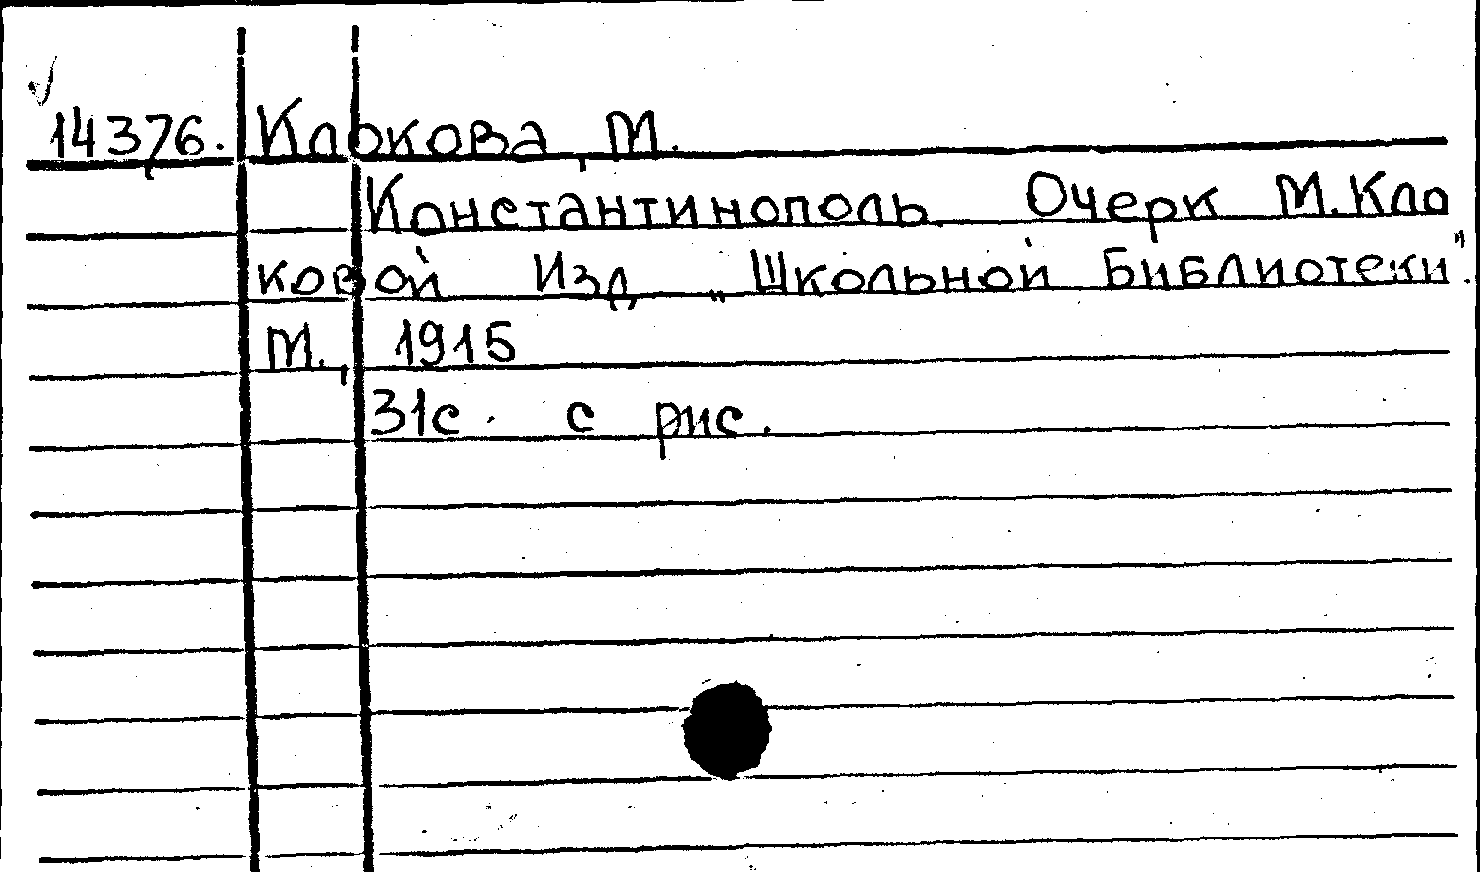 14376. Клокова, М.
Константинополь Очерк М. Кло
ковой Изд „Школьной Библиотеки".
М., 1915
31с. с рис.